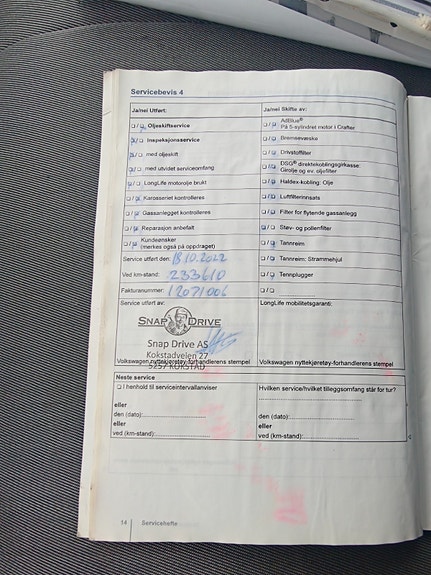 Servicebevis 4
Ja/nei Utført:
Oljeskiftservice
Inspeksjonsservice
med oljeskift
med utvidet serviceomfang
LongLife motorolje brukt
Karosseriet kontrolleres
Gassanlegget kontrolleres
Reparasjon anbefalt
Kundeønsker
(merkes også på oppdraget)
Service utført den 18.10.2022
Ved km-stand: 233610
Fakturanummer: 12071006
Ja/nei Skifte av:
AdBlue®
På 5-sylindret motor i Crafter
Bremsevæske
Drivstoffilter
DSG® direktekoblingsgirkasse:
Girolje og ev. oljefilter
Haldex-kobling: Olje
Luftfilterinnsats
Filter for flytende gassanlegg
Støv- og pollenfilter
Tannreim
Tannreim: Strammehjul
Tennplugger
Service utført av:
SNAP DRIVE
Snap Drive AS
Kokstadveien 27
5257 KOKSTAD
Volkswagen nyttekjøretøy-forhandlerens stempel
LongLife mobilitetsgaranti:
Volkswagen nyttekjøretøy-forhandlerens stempel
Neste service
I henhold til serviceintervallanviser
eller
den (dato):
eller
ved (km-stand):
Hvilken service/hvilket tilleggsomfang står for tur?
eller
den (dato):
eller
ved (km-stand):
14 Servicehefte